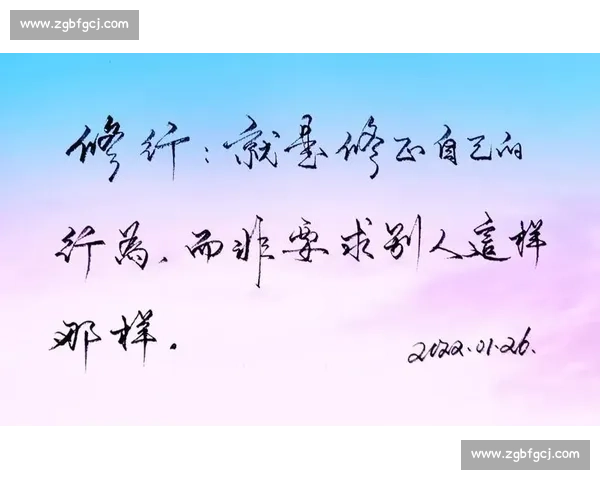 www.zgbfgcj.com
修行：就是修正自己的
行為、而非要求别人這样
那样.
2022.01.26.
www.zgbfgcj.com